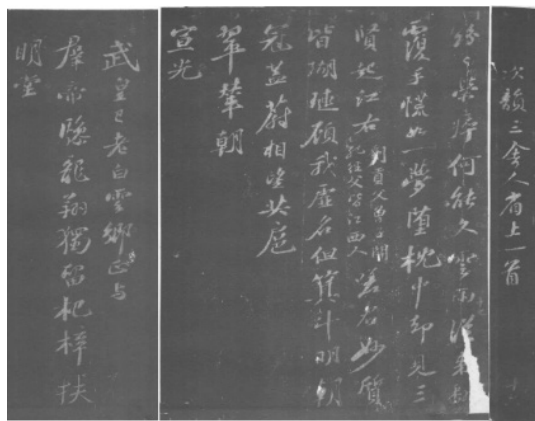 次韻三舍人省上一首
紛々榮瘁何能久雲雨從來翻
覆手慌如一夢墮枕中却見三
賢起江右劉貢父曾子開
孔經父皆江西人嗟君妙質
皆瑚璉顧我虛名但箕斗明朝
冠蓋蔚相望共扈
翠輦朝
宣光
武皇已老白雲鄉正与
羣帝驂龍翔獨留杞梓扶
明堂